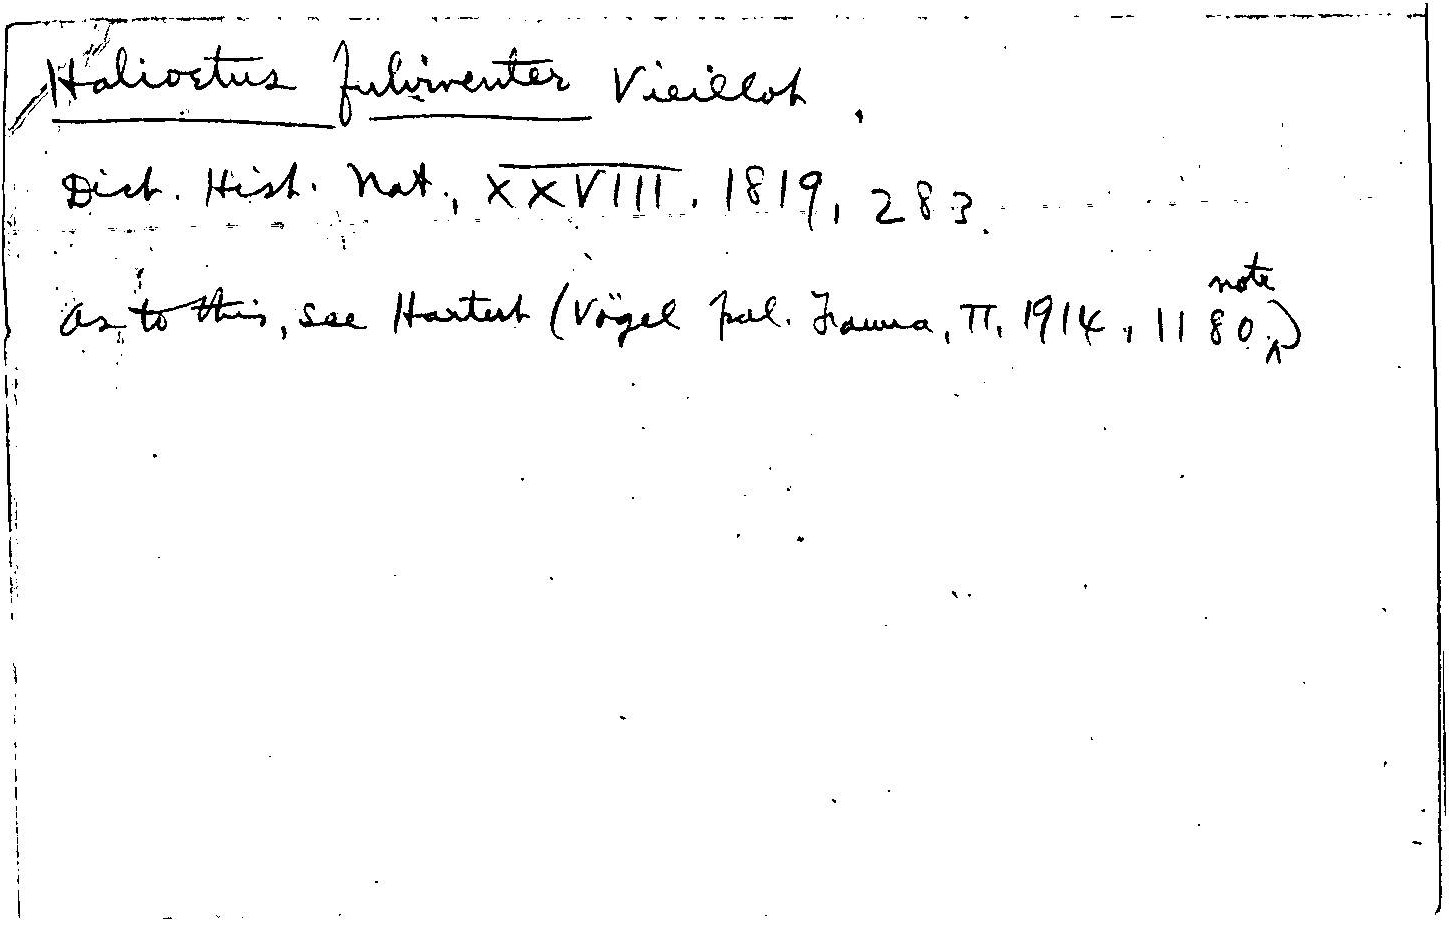 Halioetus fulviventer Vieillot,
Dict. Hist. Nat., XXVIII, 1819, 283.
As to this, see Hartert (Vögel pal. Fauna, II, 1914, 1180 note)